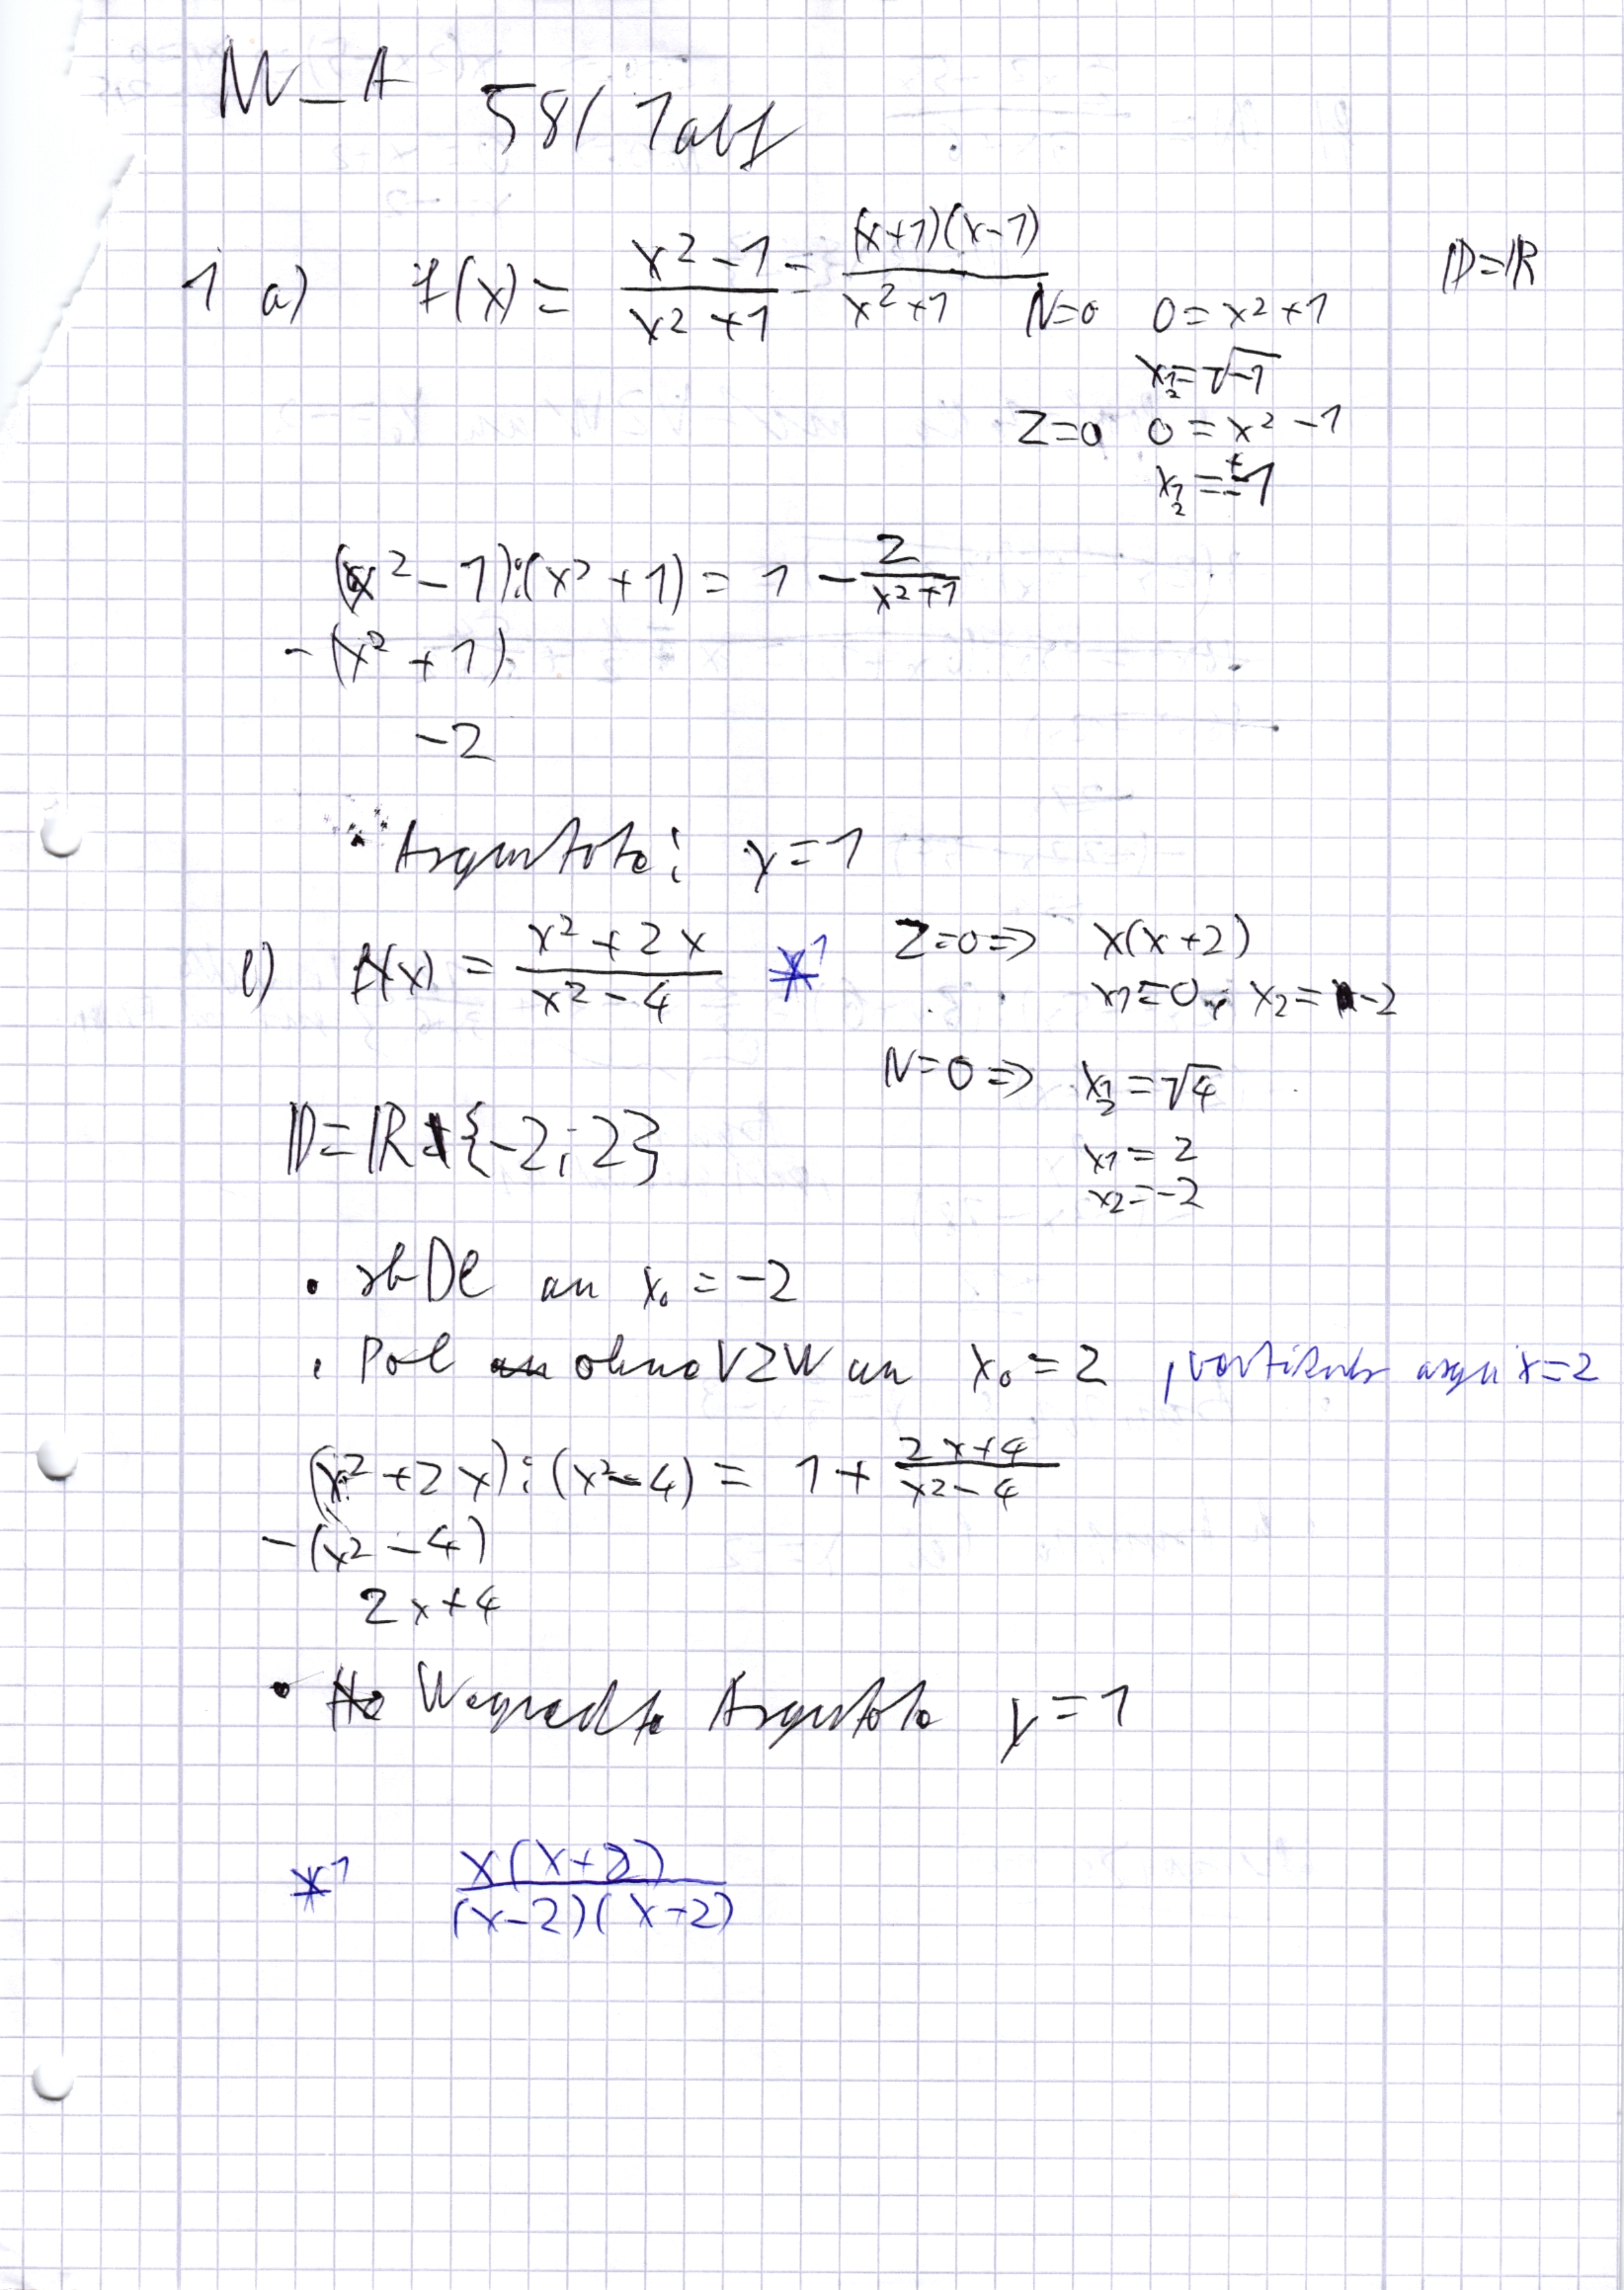 M_A 58/ 1abf
1 a) f(x) = (x²-1)/(x²+1) = ((x+1)(x-1))/(x²+1) D=ℝ
N=0 0=x²+1
x1/2=√-1
Z=0 0=x²-1
x1/2=±1
(x²-1):(x²+1) = 1 - 2/(x²+1)
-(x²+1)
-2
Asymptote: y=1
f(x) = (x²+2x)/(x²-4) *1
Z=0 => x(x+2)
x1=0, x2=-2
N=0 => x1/2=√4
x1=2
x2=-2
D=ℝ\{-2;2}
• sbDl an x₀=-2
• Pol ohne VZW an x₀=2, vertikale asym x=2
(x²+2x):(x²-4) = 1+ (2x+4)/(x²-4)
-(x²-4)
2x+4
• Waagrechte Asymptote y=1
*1 (x(x+2))/((x-2)(x+2))